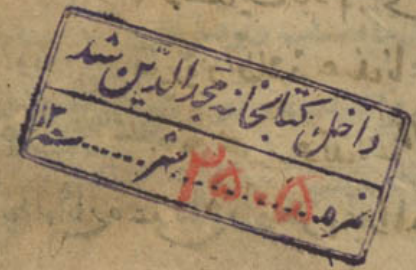 داخل کتابخانه مجدالدین شد
نمره ۲۵۰۵ شهر سنه ۱۳